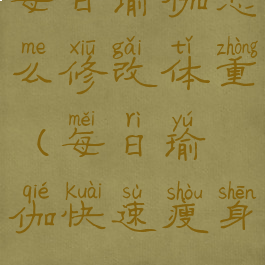 每日瑜伽怎
me xiū gǎi tǐ zhòng
么修改体重
měi rì yú
(每日瑜
qié kuài sù shòu shēn
伽快速瘦身